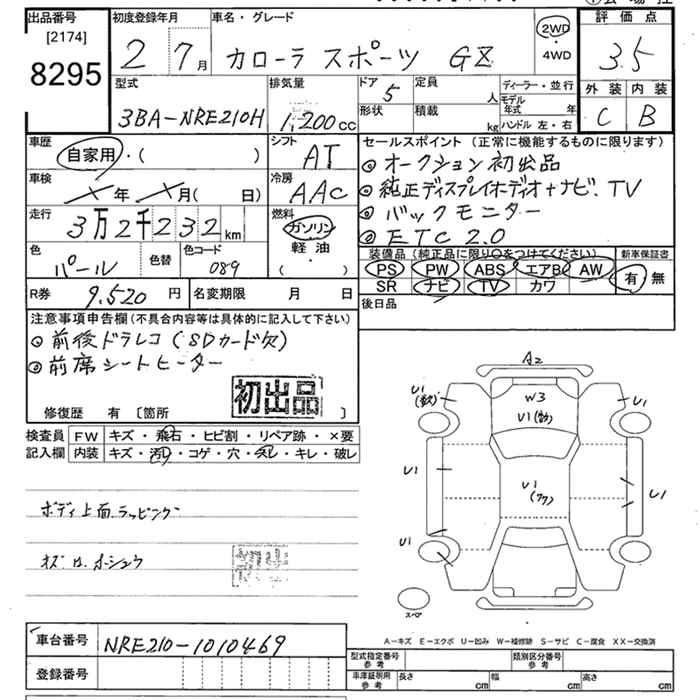 出品番号
[2174]
8295
初度登録年月
2 7月
車名・グレード
カローラ スポーツ GZ
2WD
・
4WD
評価点
3.5
外装 内装
C B
型式
3BA-NRE210H
排気量
1,200cc
ドア 5
形状
定員 人
積載 kg
ディーラー・並行
モデル年式 年
ハンドル 左・右
車歴
自家用・( )
シフト
AT
車検
年 月( 日)
冷房
AAC
走行
3万2千232km
燃料
ガソリン
軽油
・
( )
色
パール
色替
色コード
089
R券 9,520円
名変期限 月 日
セールスポイント(正常に機能するものに限ります)
◎オークション初出品
◎純正ディスプレイオーディオ+ナビ、TV
◎バックモニター
◎ETC 2.0
装備品(純正品に限り○をつけてください)
PS PW ABS エアB AW
SR ナビ TV カワ
新車保証書
有 無
後日品
注意事項申告欄(不具合内容等は具体的に記入して下さい)
◎前後ドラレコ(SDカード欠)
◎前席シートヒーター
初出品
修復歴 有 〔箇所 〕
検査員
記入欄
FW キズ・飛石・ヒビ割・リペア跡・×要
内装 キズ・汚レ・コゲ・穴・スレ・キレ・破レ
ボディ上面、ラッピング
A2
W3
U1
U1
U1
U1
U1
U1
U1
スペア
A-キズ E-エクボ U-凹み W-補修跡 S-サビ C-腐食 XX-交換済
車台番号 NRE210-1010469
登録番号
型式指定番号
参考
類別区分番号
参考
車庫証明用
参考
長さ cm
幅 cm
高さ cm